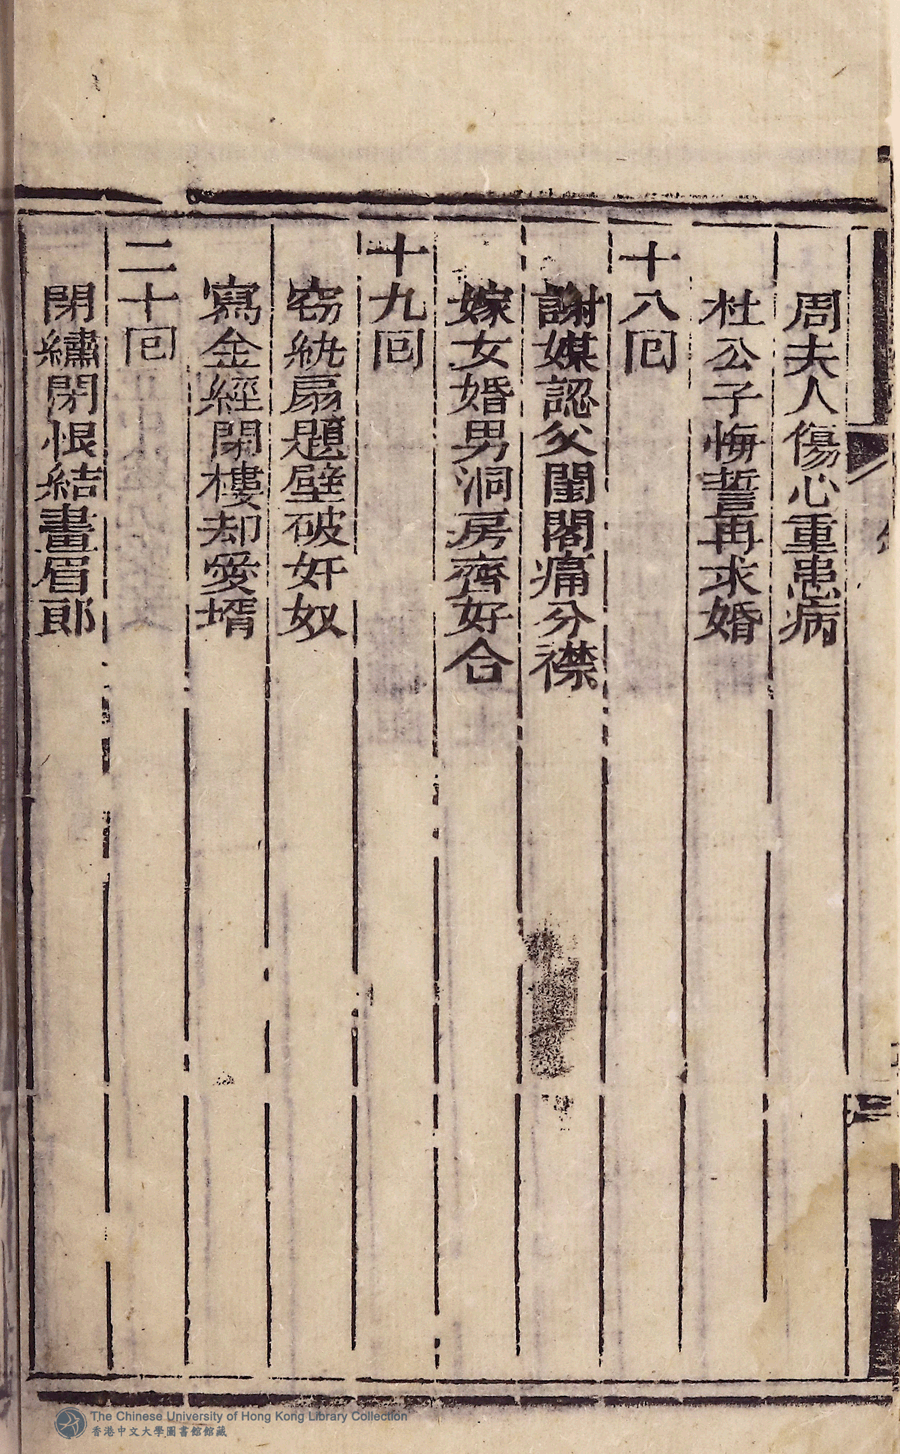 周夫人傷心重患病
杜公子悔誓再求婚
十八囘
謝媒認父閨閣痛分襟
嫁女婚男洞房齊好合
十九囘
窃紈扇題壁破奸奴
寫金經閉樓却愛壻
二十囘
閉繡閣恨結畫眉郎
The Chinese University of Hong Kong Library Collection
香港中文大學圖書館館藏